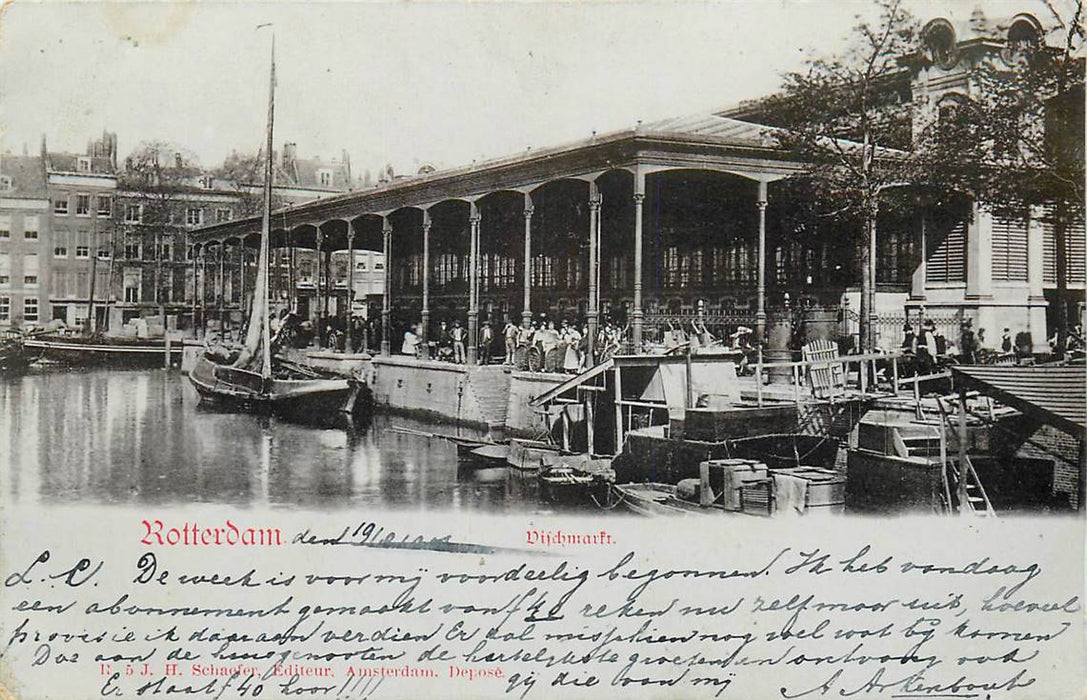 Rotterdam. den 19/
Vischmarkt.
L. C. De week is voor mij voordeelig begonnen. Ik heb vandaag
een abonnement gemaakt van f 40 reken nu zelf maar uit, hoeveel
provisie ik daaraan verdien Er zal misschien nog wel wat bij komen
Doe aan de huisgenooten de hartelijkste groeten en ontvang ook
R. 5 J. H. Schaefer, Editeur, Amsterdam. Deposé.
Er staat f 40 hoor!!!! gij die van mij